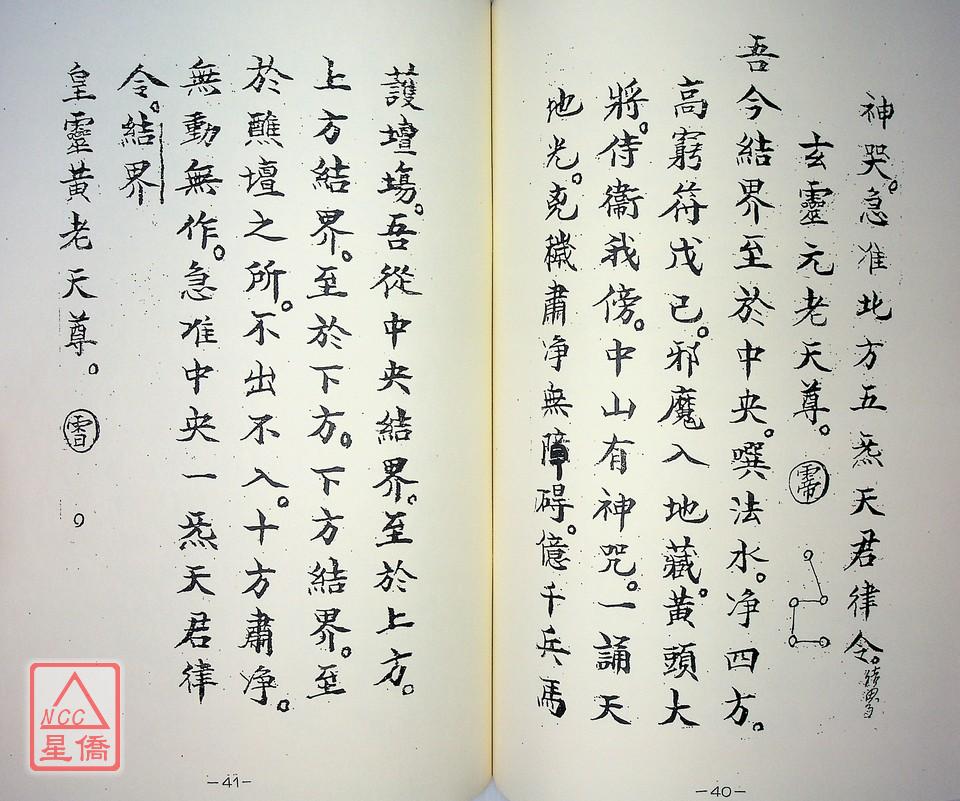 神哭。急准北方五炁天君律令。結界
玄靈元老天尊。
吾今結界至於中央。噀法水。净四方。
高窮符戊己。邪魔入地藏。黃頭大
將。侍衛我傍。中山有神咒。一誦天
地光。兇穢肅净無障碍。億千兵馬
-40-
護壇場。吾從中央結界。至於上方。
上方結界。至於下方。下方結界。至
於醮壇之所。不出不入。十方肅净。
無動無作。急准中央一炁天君律
令。結界
皇靈黃老天尊。
-41-
NCC
星僑